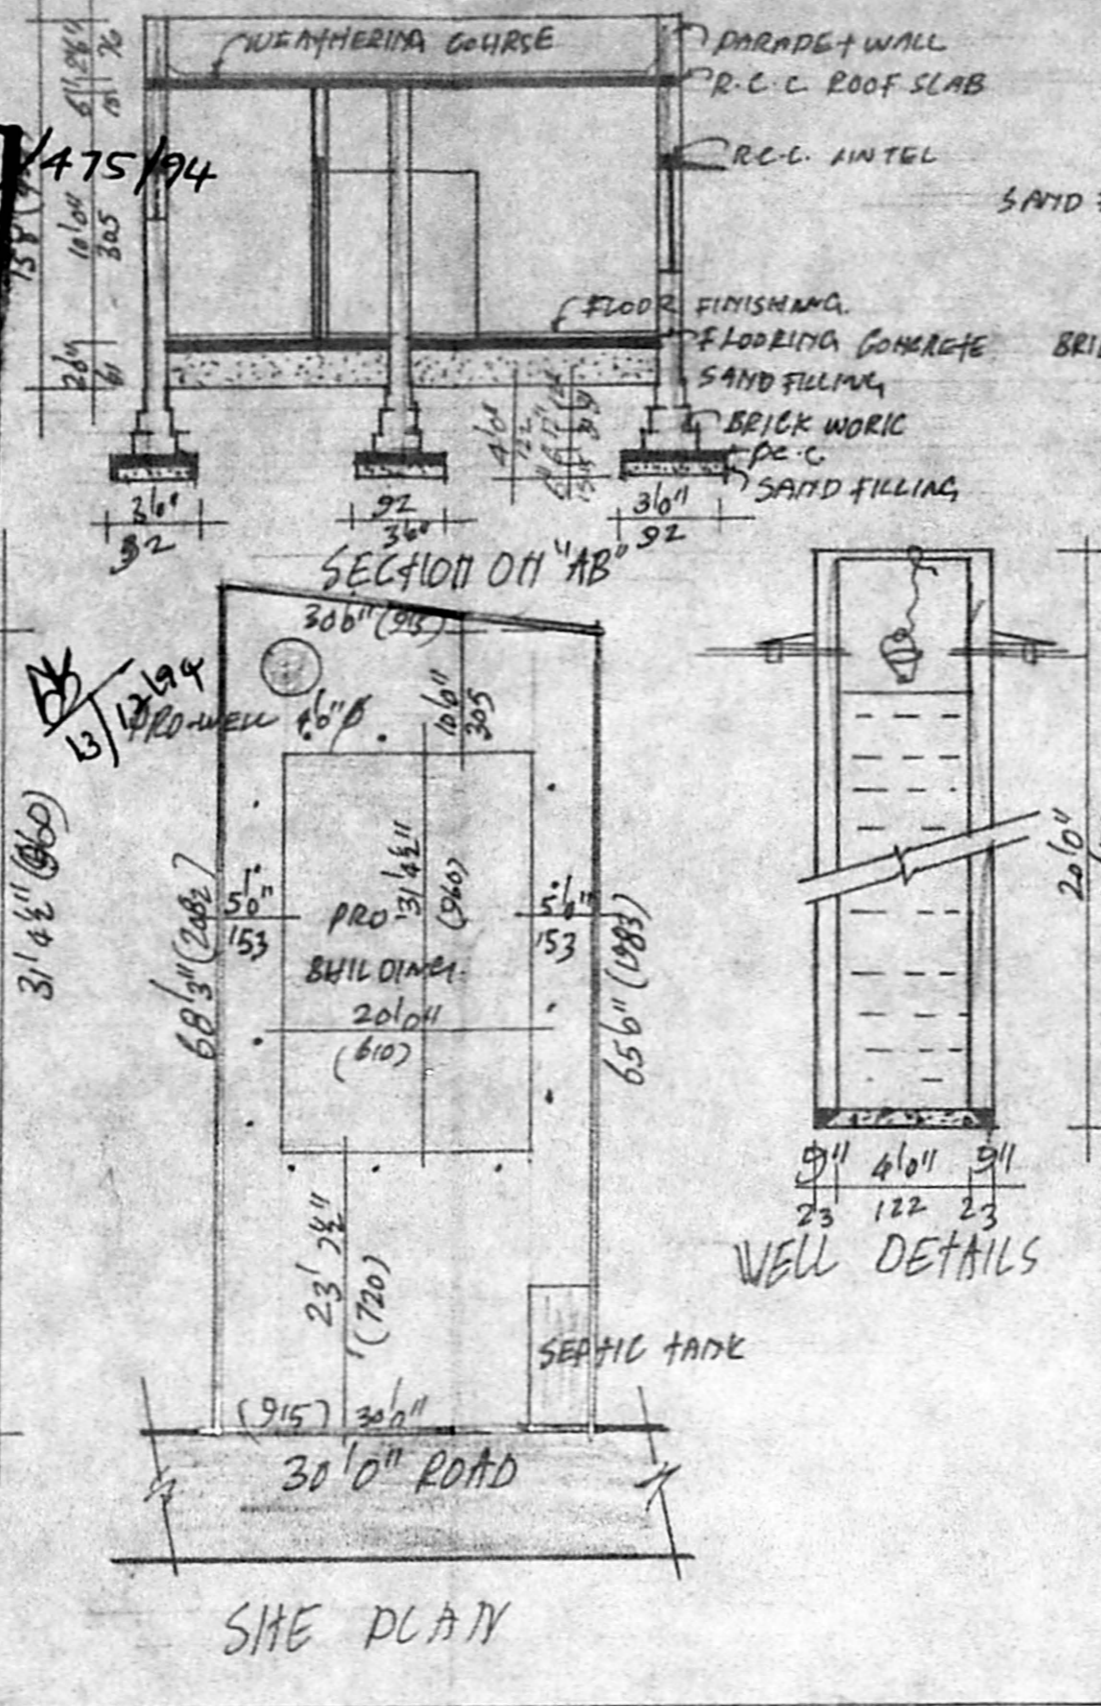 WEATHERING COURSE
PARAPET WALL
R.C.C. ROOF SLAB
/475/94
R.C.C. LINTEL
SAND
10'0"
305
FLOOR FINISHING.
FLOORING CONCRETE
SAND FILLING
BRICK WORK
P.C.C
SAND FILLING
2'0"
61
4'0"
122
3'0"
92
92
3'0"
3'0"
92
SECTION ON "AB"
30'0" (915)
13/12/94
PRO-WELL 4'0"Ø
10'0"
305
31'4½" (960)
68'3" (2082)
5'0"
153
PRO
BUILDING.
31'4½"
(960)
20'0"
(610)
5'0"
153
65'0" (1983)
23'7½"
(720)
SEPTIC TANK
(915) 30'0"
30'0" ROAD
SITE PLAN
20'0"
9" 4'0" 9"
23 122 23
WELL DETAILS